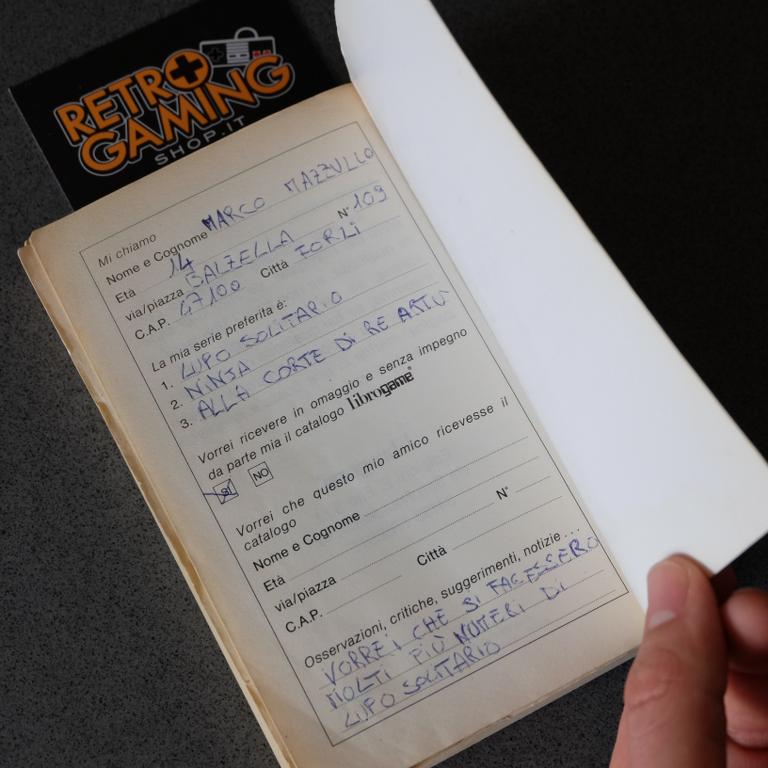 RETRO
GAMING
SHOP.IT
Mi chiamo
Nome e Cognome MARCO MAZZULLO
Età 14
via/piazza BALZELLA N° 109
C.A.P. 47100 Città FORLÌ
La mia serie preferita è:
1. LUPO SOLITARIO
2. NINJA
3. ALLA CORTE DI RE ARTÙ
Vorrei ricevere in omaggio e senza impegno
da parte mia il catalogo librogame®
SI NO
Vorrei che questo mio amico ricevesse il
catalogo
Nome e Cognome
Età
via/piazza N°
C.A.P. Città
Osservazioni, critiche, suggerimenti, notizie...
VORREI CHE SI FACESSERO
MOLTI PIÙ NUMERI DI
LUPO SOLITARIO